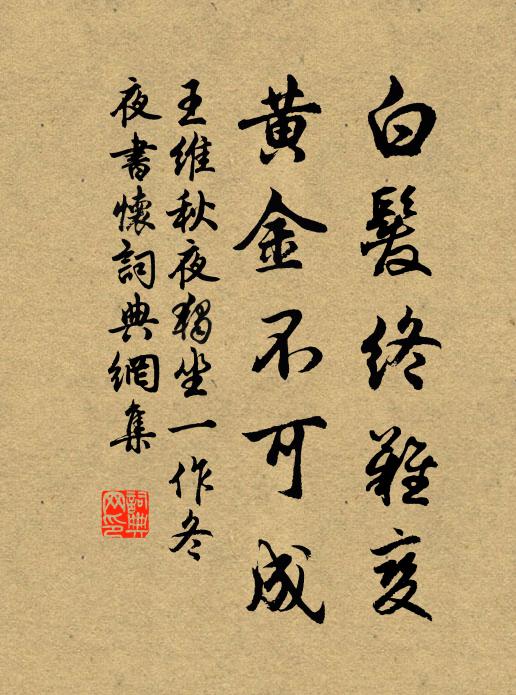 白髮終難變
黃金不可成
王維秋夜獨坐一作冬
夜書懷詞典網集
詞典
网印